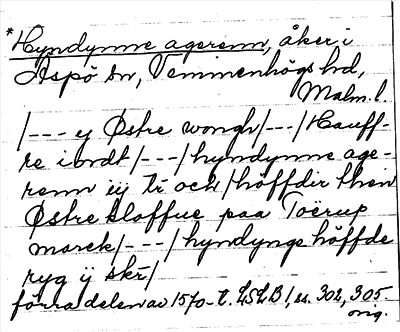 *Hyndynne agerenn, åker i
Aspö sn, Vemmenhögs hd,
Malm. l.
/--- ej Østre wongh/---/Hauff-
re i ordt/---/hyndynne age-
renn ij tr och/höffdir then
Østre Kloffue paa Toërup
marck/---/hyndyngs höffde
ryg ij skr/
förra delen av 1570-t. LSLB 1, ss. 302, 305.
orig.